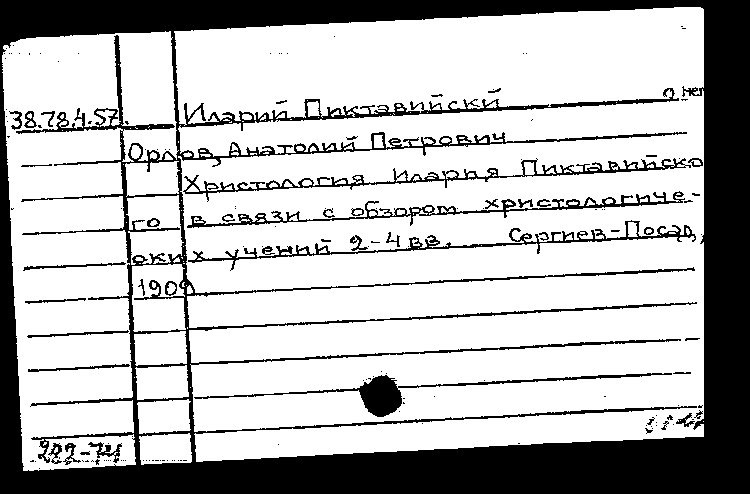 38.784.57. Иларий Пиктавийский о нем
Орлов, Анатолий Петрович
Христология Илария Пиктавийско
го в связи с обзором христологиче-
ских учений 2-4 вв. Сергиев-Посад,
1909
282-74